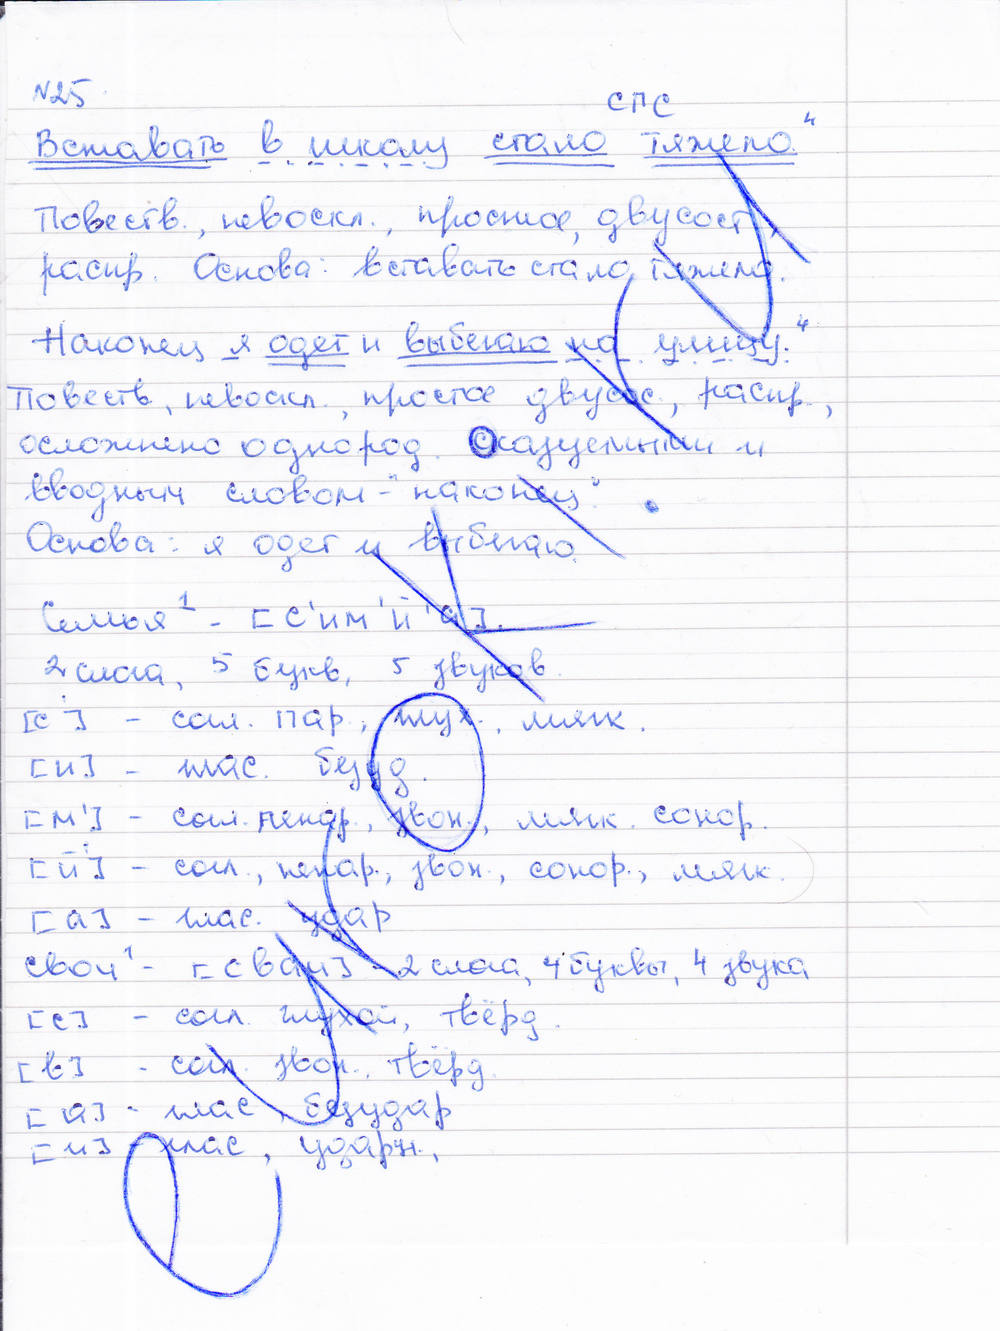 №25
СПС
Вставать в школу стало тяжело.⁴
Повеств., невоскл., простое, двусост.,
распр. Основа: вставать стало тяжело.
Наконец я одет и выбегаю на улицу.⁴
Повеств., невоскл., простое двусос., распр.,
осложнено однород. сказуемыми и
вводным словом - "наконец".
Основа: я одет и выбегаю
Семья¹ - [с'им'й'а].
2 слога, 5 букв, 5 звуков.
[с'] - согл. пар., глух., мягк.
[и] - глас. безуд.
[м'] - согл. непар., звон., мягк. сонор.
[й'] - согл., непар., звон., сонор., мягк.
[а] - глас. удар
свои¹ - [сваи] - 2 слога, 4 буквы, 4 звука
[с] - согл. глухой, твёрд.
[в] - согл. звон., твёрд.
[а] - глас, безудар
[и] - глас, ударн.,